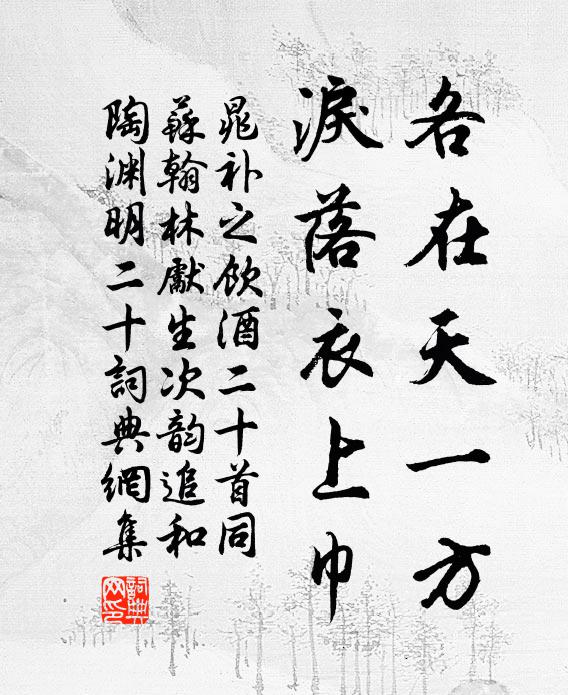 各在天一方
淚落衣上巾
晁补之飲酒二十首同
蘇翰林獻生次韵追和
陶渊明二十詞典網集
詞典
网印